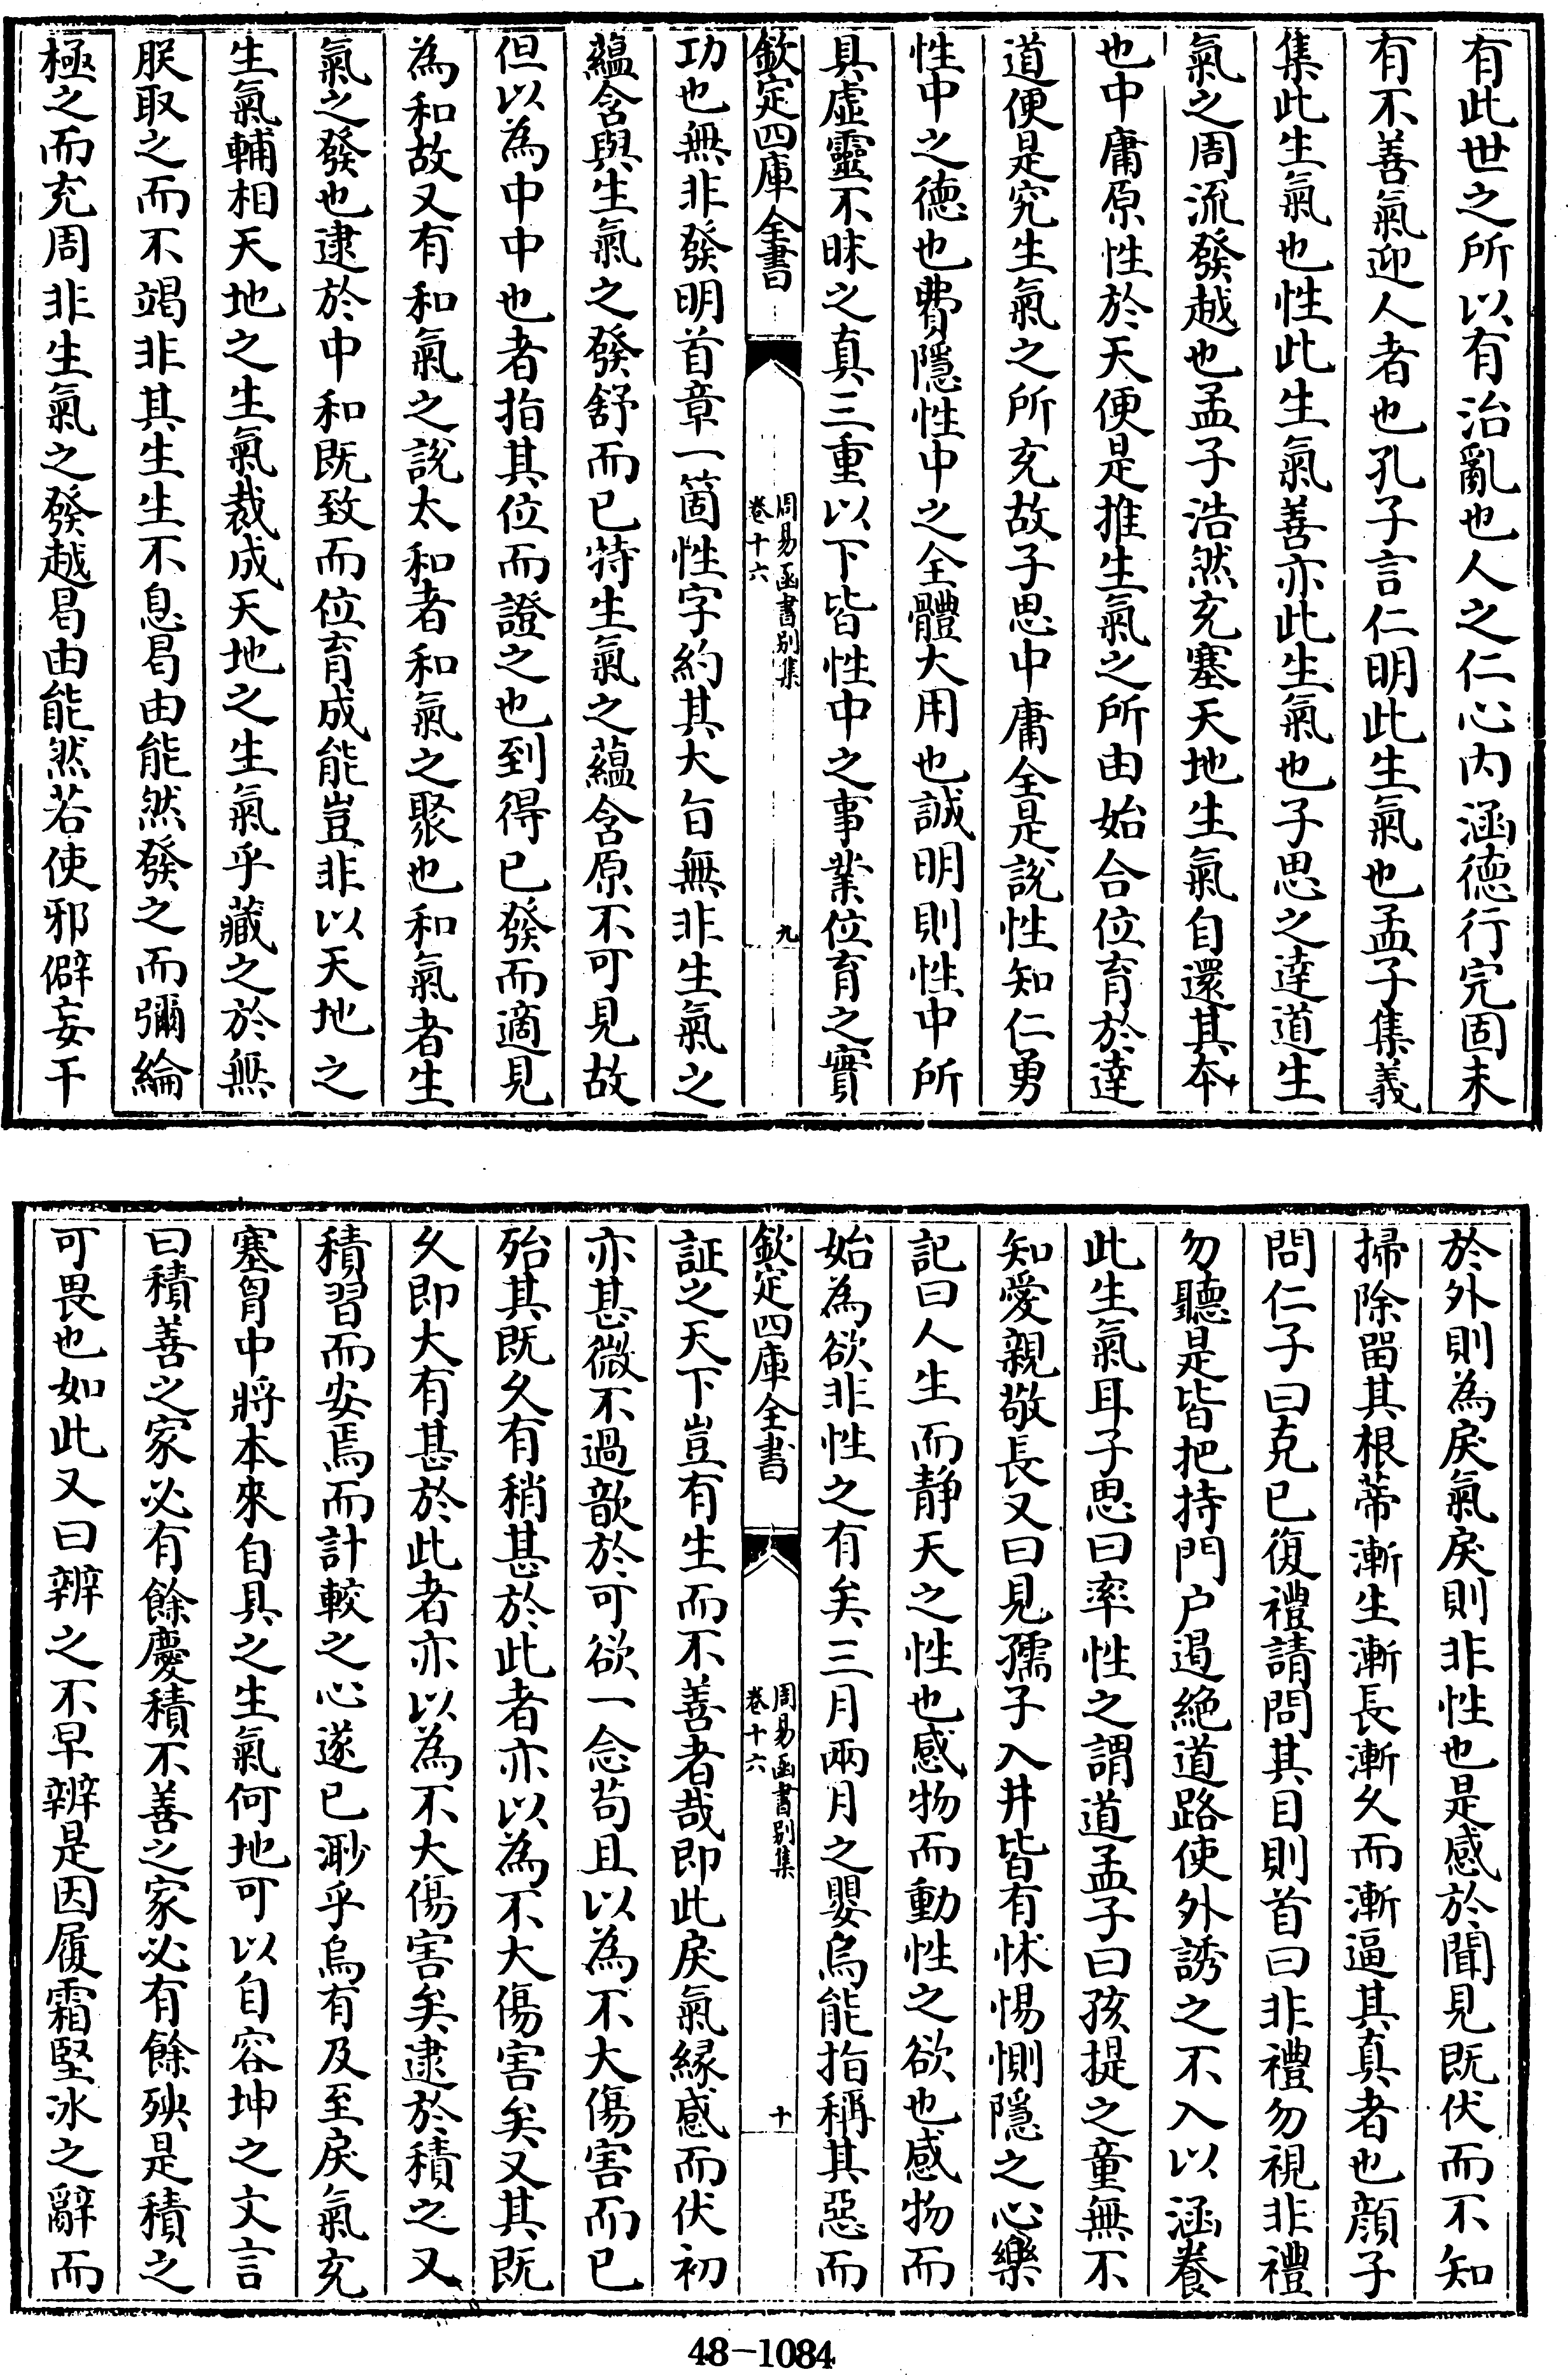 有此世之所以有治亂也人之仁心内涵德行完固未
有不善氣迎人者也孔子言仁明此生氣也孟子集義
集此生氣也性此生氣善亦此生氣也子思之達道生
氣之周流發越也孟子浩然充塞天地生氣自還其本
也中庸原性於天便是推生氣之所由始合位育於達
道便是究生氣之所充故子思中庸全是說性知仁勇
性中之德也費隱性中之全體大用也誠明則性中所
具虛靈不昧之真三重以下皆性中之事業位育之實
欽定四庫全書
周易函書别集
卷十六
九
功也無非發明首章一箇性字約其大旨無非生氣之
蘊含與生氣之發舒而已特生氣之蘊含原不可見故
但以為中中也者指其位而證之也到得已發而適見
為和故又有和氣之說太和者和氣之聚也和氣者生
氣之發也逮於中和既致而位育成能豈非以天地之
生氣輔相天地之生氣裁成天地之生氣乎藏之於無
朕取之而不竭非其生生不息曷由能然發之而彌綸
極之而充周非生氣之發越曷由能然若使邪僻妄干
於外則為戾氣戾則非性也是感於聞見既伏而不知
掃除留其根蒂漸生漸長漸久而漸逼其真者也顔子
問仁子曰克已復禮請問其目則首曰非禮勿視非禮
勿聽是皆把持門户遏絶道路使外誘之不入以涵養
此生氣耳子思曰率性之謂道孟子曰孩提之童無不
知愛親敬長又曰見孺子入井皆有怵惕惻隱之心樂
記曰人生而静天之性也感物而動性之欲也感物而
始為欲非性之有矣三月兩月之嬰烏能指稱其惡而
欽定四庫全書
周易函書别集
卷十六
十
証之天下豈有生而不善者哉即此戾氣緣感而伏初
亦甚微不過歆於可欲一念苟且以為不大傷害而已
殆其既久有稍甚於此者亦以為不大傷害矣又其既
久即大有甚於此者亦以為不大傷害矣逮於積之又
積習而安焉而計較之心遂已渺乎烏有及至戾氣充
塞胷中將本來自具之生氣何地可以自容坤之文言
曰積善之家必有餘慶積不善之家必有餘殃是積之
可畏也如此又曰辨之不早辨是因履霜堅冰之辭而
48-1084